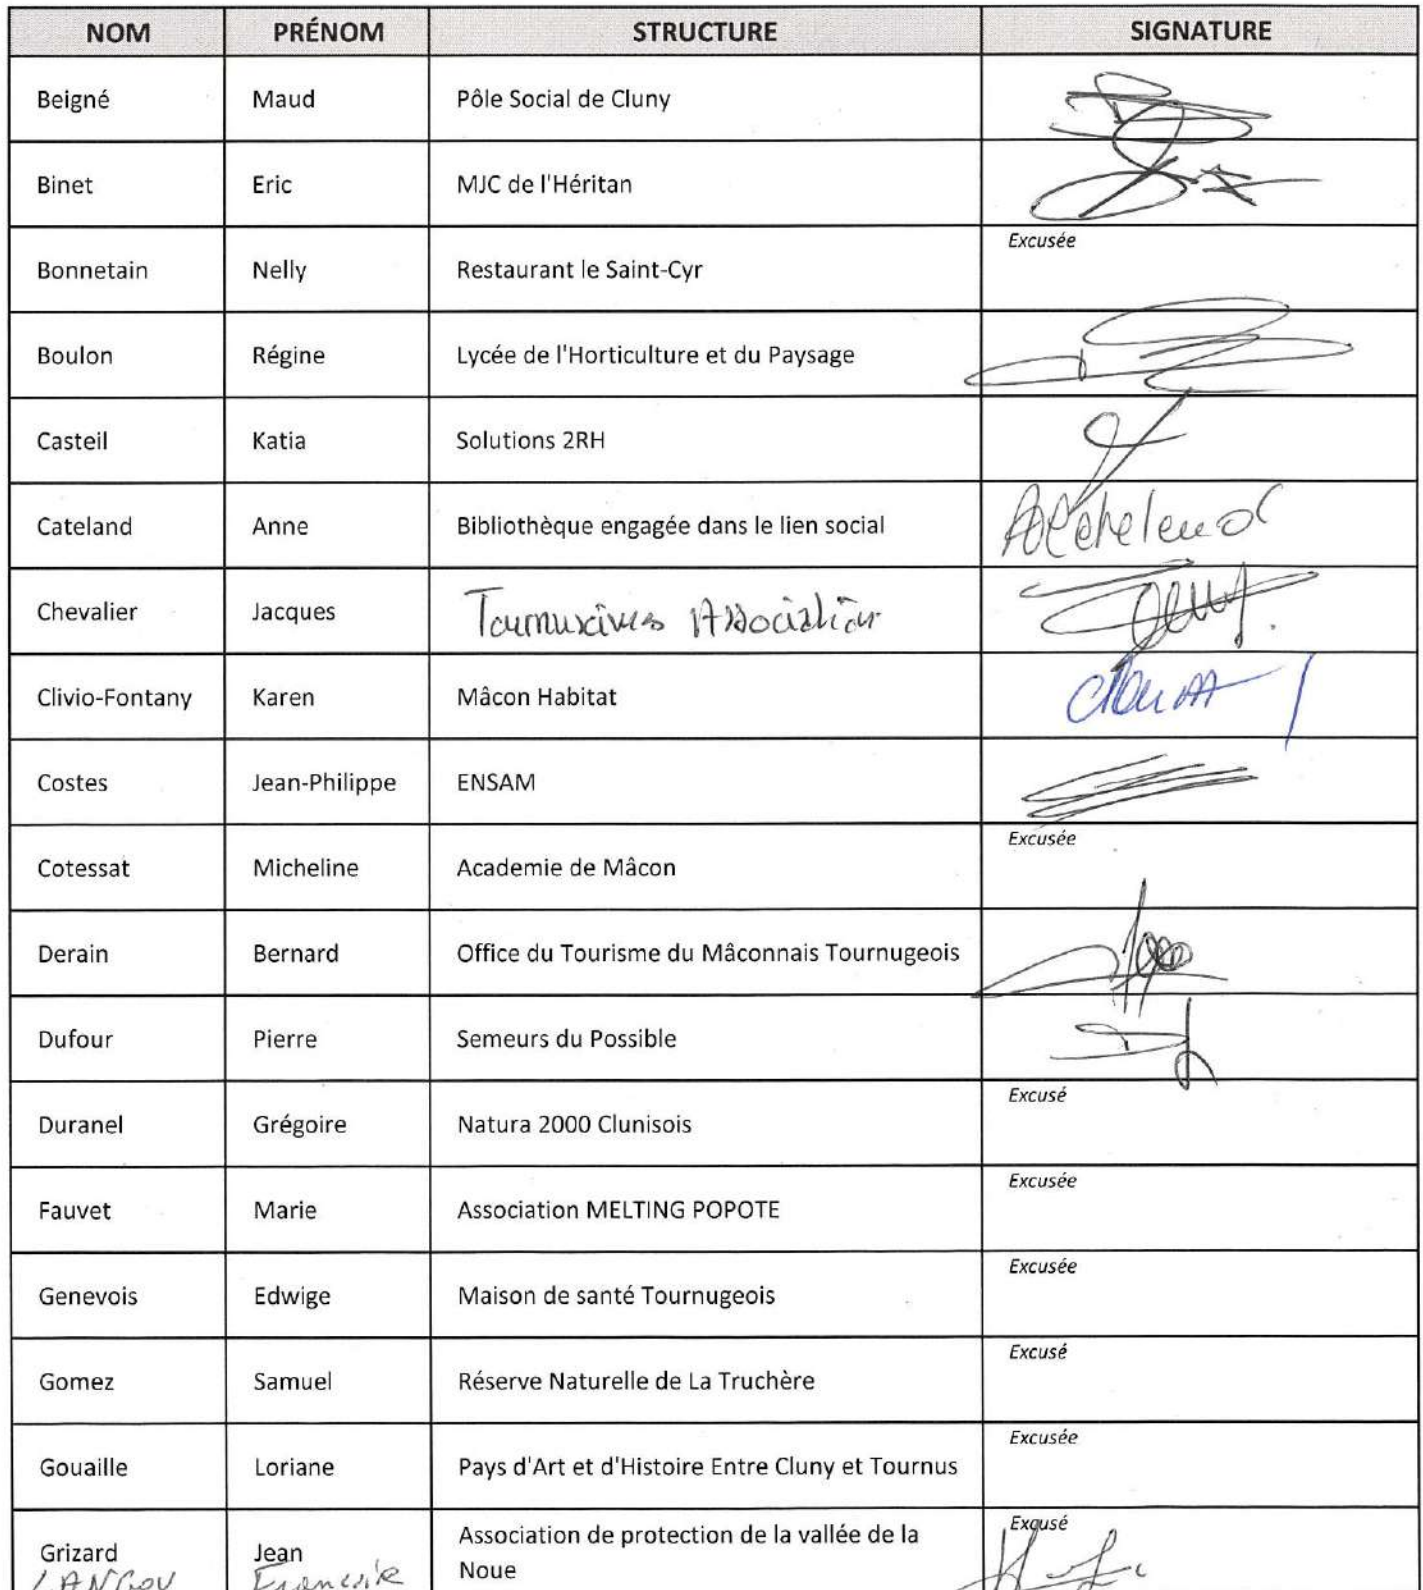 NOM PRÉNOM STRUCTURE SIGNATURE
Beigné Maud Pôle Social de Cluny
Binet Eric MJC de l'Héritan
Excusée
Bonnetain Nelly Restaurant le Saint-Cyr
Boulon Régine Lycée de l'Horticulture et du Paysage
Casteil Katia Solutions 2RH
Cateland Anne Bibliothèque engagée dans le lien social
Chevalier Jacques Association
Clivio-Fontany Karen Mâcon Habitat
Costes Jean-Philippe ENSAM
Excusée
Cotessat Micheline Academie de Mâcon
Derain Bernard Office du Tourisme du Mâconnais Tournugeois
Dufour Pierre Semeurs du Possible
Excusé
Duranel Grégoire Natura 2000 Clunisois
Excusée
Fauvet Marie Association MELTING POPOTE
Excusée
Genevois Edwige Maison de santé Tournugeois
Excusé
Gomez Samuel Réserve Naturelle de La Truchère
Excusée
Gouaille Loriane Pays d'Art et d'Histoire Entre Cluny et Tournus
Excusé
Grizard Jean Association de protection de la vallée de la
Noue